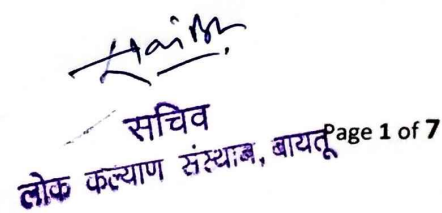 सचिव
लोक कल्याण संस्थान, बायतू Page 1 of 7